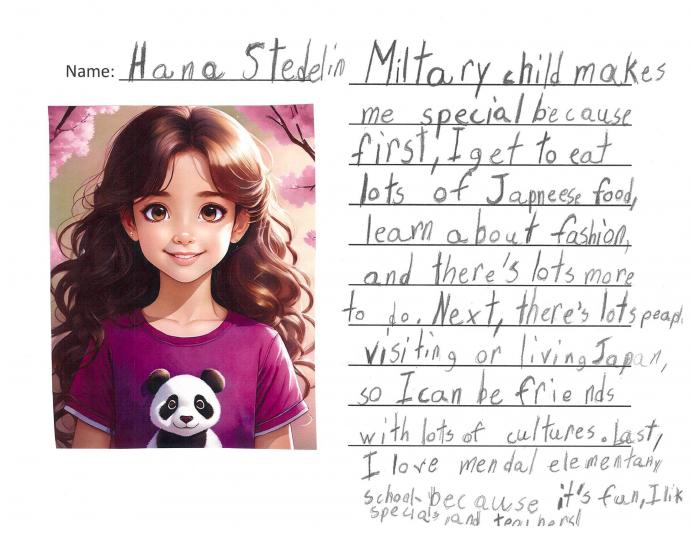 Name: Hana Stedelin
Miltary child makes
me special because
first, I get to eat
lots of Japneese food,
learn about fashion,
and there's lots more
to do. Next, there's lots peapl
visiting or living Japan,
so I can be friends
with lots of cultures. Last,
I love mendal elementary
school because it's fun, I lik
specials, and teachers!